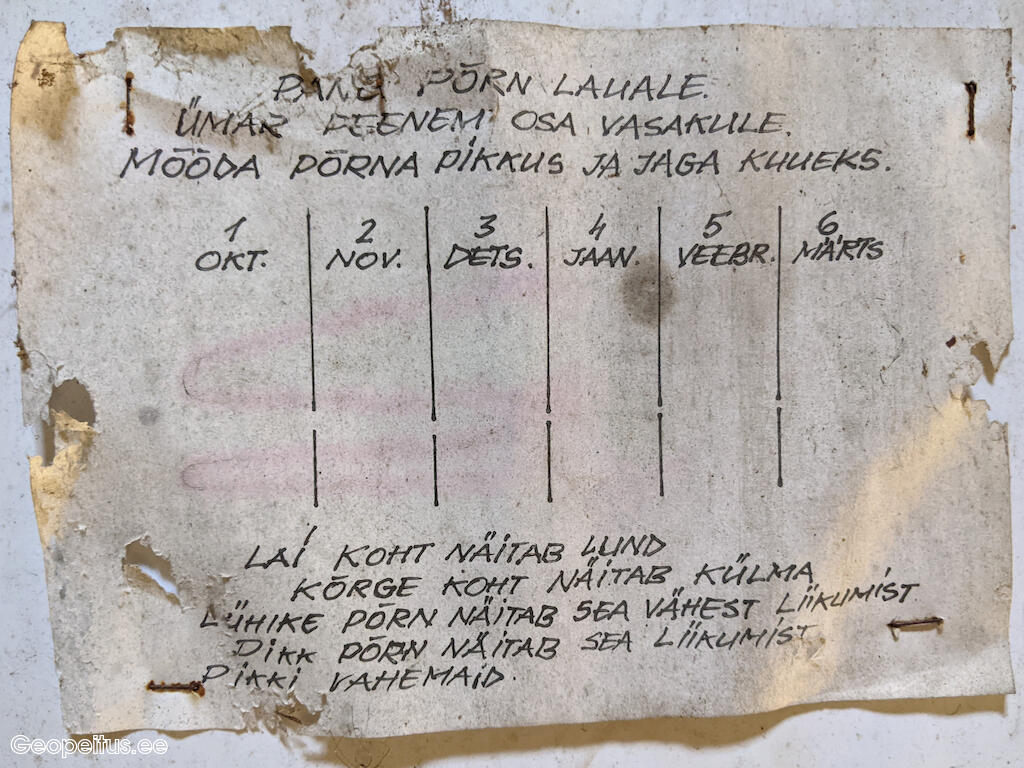 PANE PÕRN LAUALE.
ÜMAR PEENEM OSA VASAKULE.
MÕÕDA PÕRNA PIKKUS JA JAGA KUUEKS.
1 2 3 4 5 6
OKT. NOV. DETS. JAAN. VEEBR. MÄRTS
LAI KOHT NÄITAB LUND
KÕRGE KOHT NÄITAB KÜLMA
LÜHIKE PÕRN NÄITAB SEA VÄHEST LIIKUMIST
PIKK PÕRN NÄITAB SEA LIIKUMIST
PIKKI VAHEMAID.
Geopeitus.ee